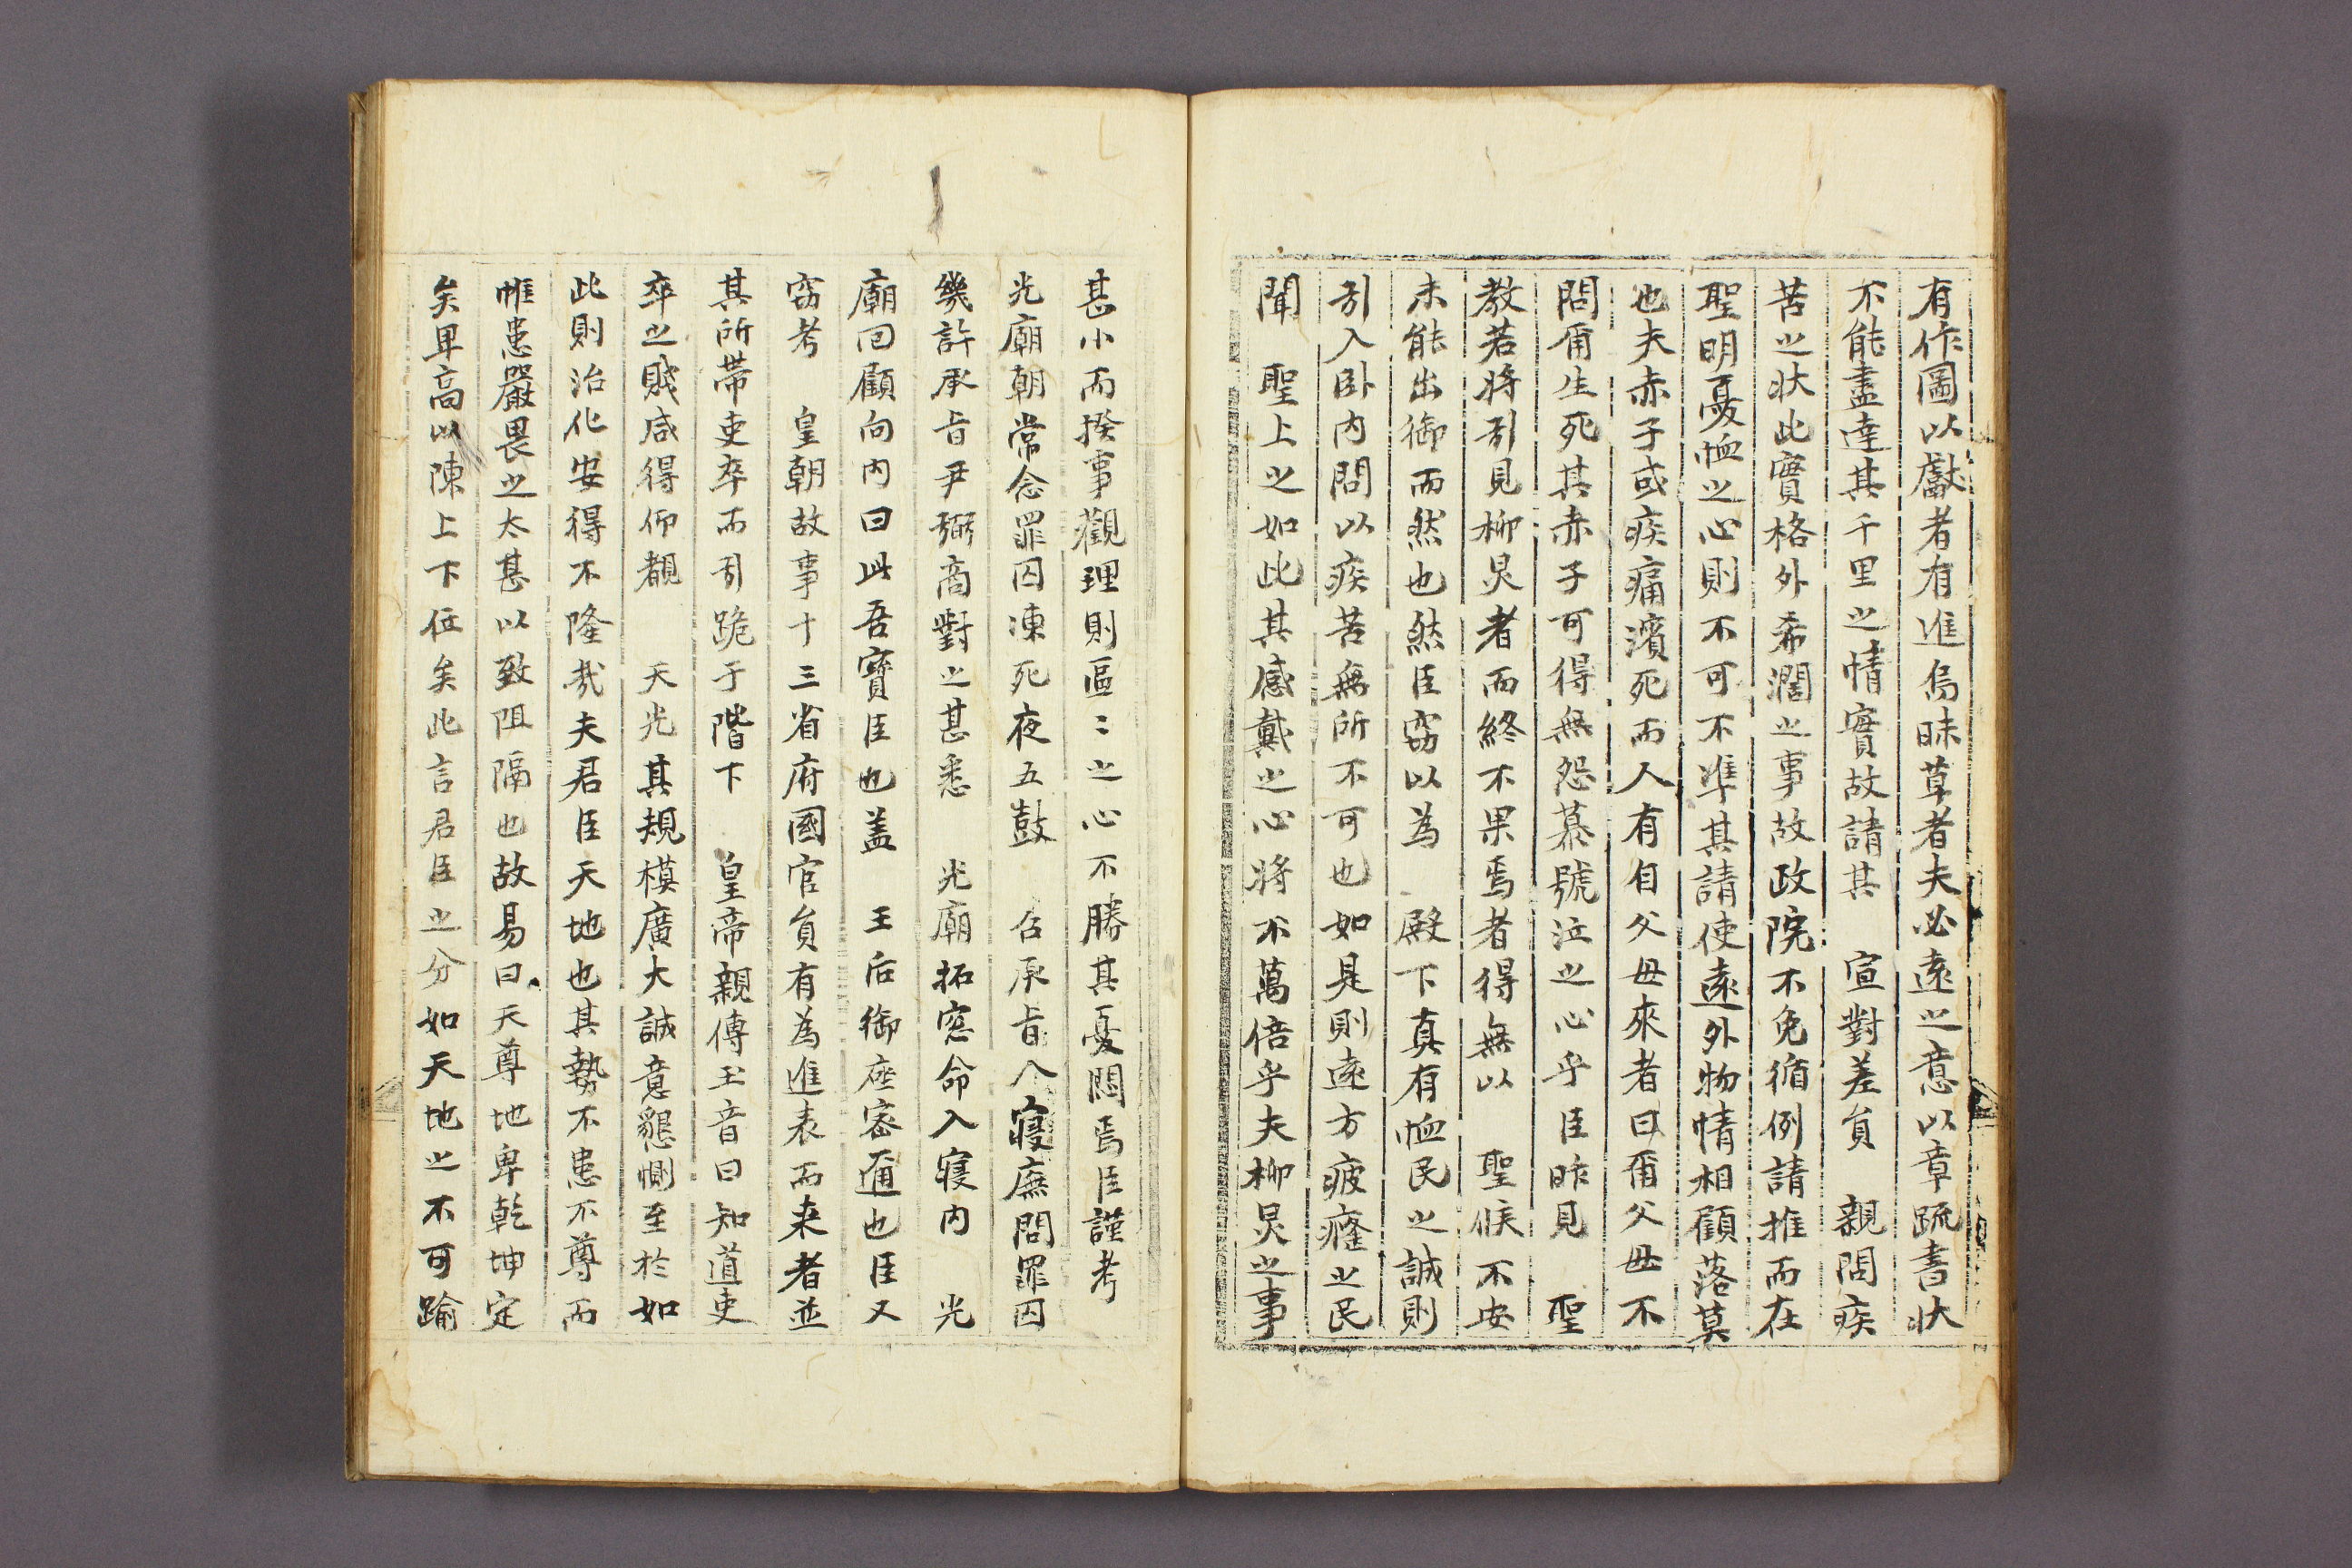 有作圖以獻者有進烏昧草者夫必遠之意以章䟽書狀
不能盡達其千里之情實故請其　宣對差貟　親問疾
苦之狀此實格外希濶之事故政院不免循例請推而在
聖明憂恤之心則不可不準其請使遠外物情相顧落莫
也夫赤子或疾痛濱死而人有自父母來者曰甭父母不
問甭生死其赤子可得無怨慕號泣之心乎臣昨見　聖
教若將引見柳炅者而終不果焉者得無以　聖候不安
未能出御而然也然臣窃以為　殿下真有恤民之誠則
引入卧内問以疾苦無所不可也如是則遠方疲癃之民
聞　聖上之如此其感戴之心將不萬倍乎夫柳炅之事
甚小而揆事觀理則區〻之心不勝其憂悶焉臣謹考
光廟朝常念罪囚凍死夜五鼓　召承旨入寢廡問罪囚
幾許承旨尹弼商對之甚悉　光廟拓窓命入寢内　光
廟回顧向内曰此吾寶臣也盖　王后御座密邇也臣又
窃考　皇朝故事十三省府國官貟有為進表而来者並
其所帶吏卒而引跪于階下　皇帝親傳玉音曰知道吏
卒之賤咸得仰覩　天光其規模廣大誠意懇惻至於如
此則治化安得不隆㢤夫君臣天地也其勢不患不尊而
惟患嚴畏之太甚以致阻隔也故易曰天尊地卑乾坤定
矣卑高以陳上下位矣此言君臣之分如天地之不可踰